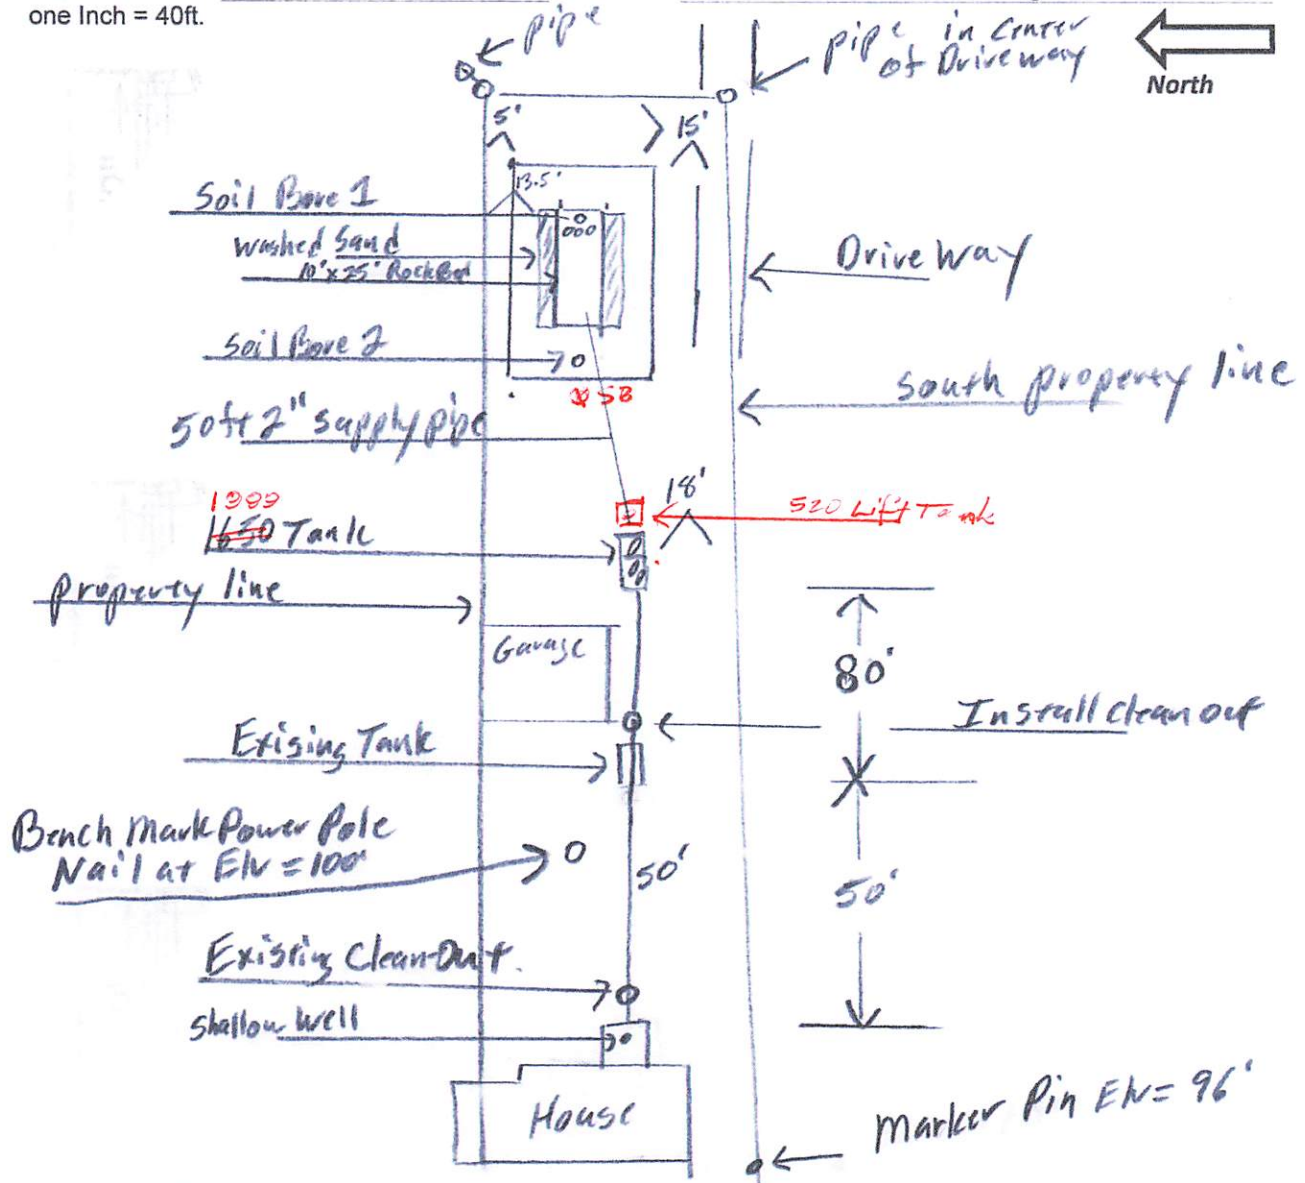 one Inch = 40ft.
pipe
pipe in Center
of Driveway
North
5'
15'
13.5'
Soil Bore 1
washed Sand
10'x25' Rock Bed
Drive Way
Soil Bore 2
58
South property line
50ft 2" supply pipe
18'
1999
520 Lift Tank
1650 Tank
property line
Garage
80'
Install clean out
Exising Tank
Bench Mark Power Pole
Nail at Elv = 100'
50'
50'
Existing Clean-Out.
Shallow Well
House
Marker Pin Elv = 96'